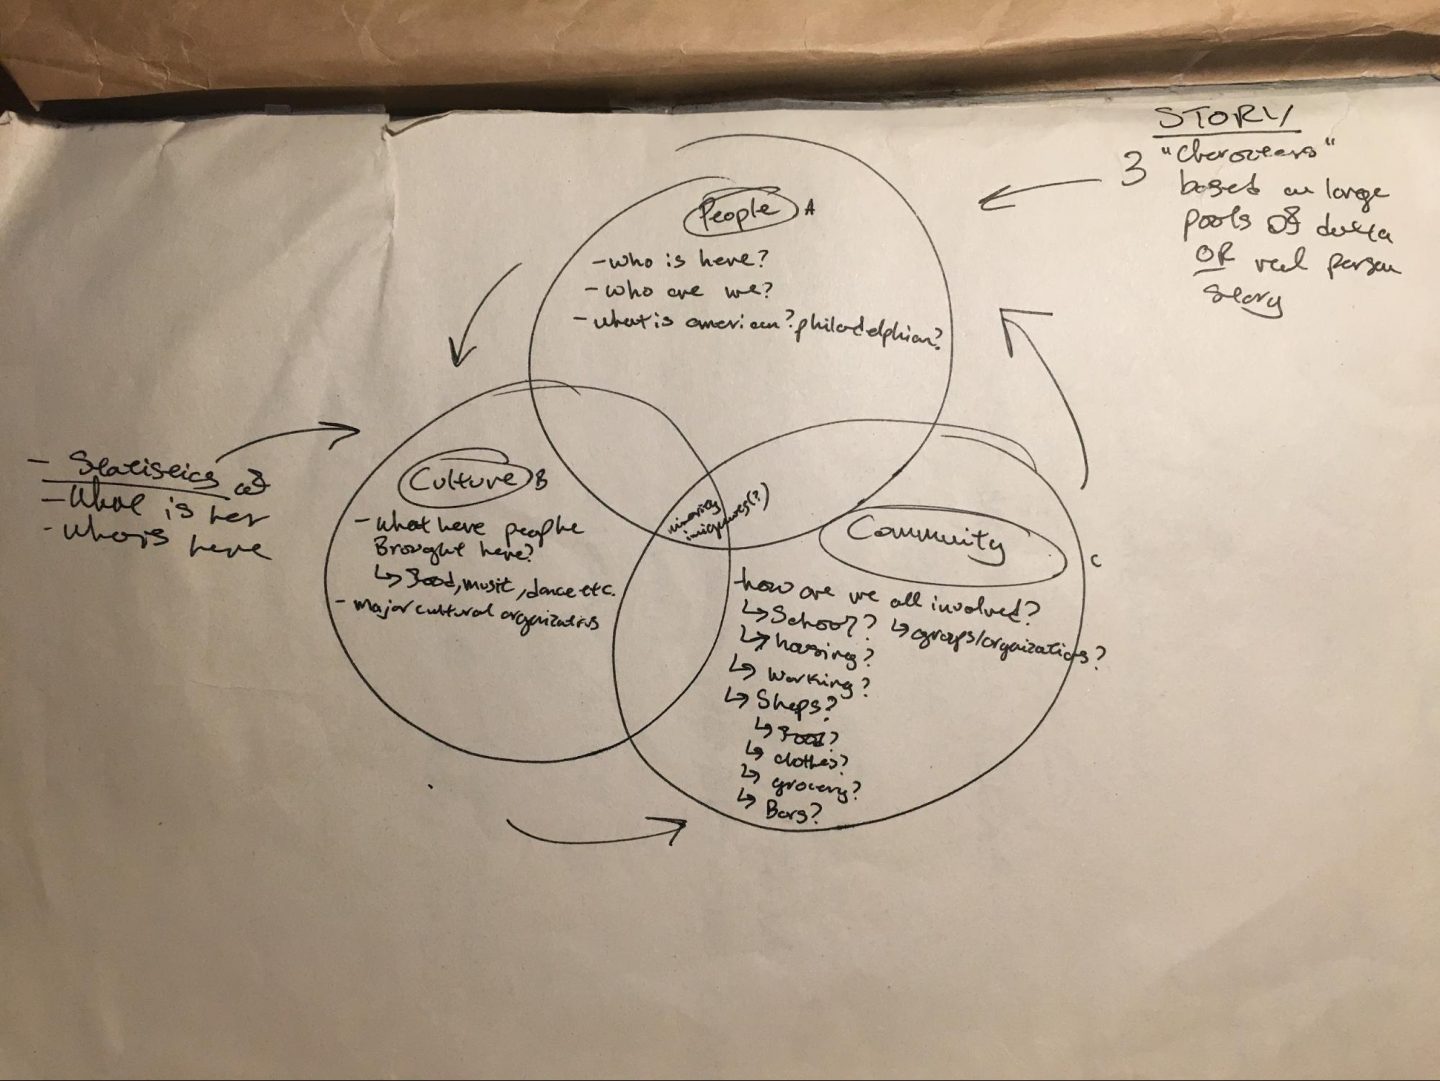 STORY
3 "Characters"
based on large
pools of data
OR real person
story
People A
- who is here?
- who are we?
- what is american? philadelphian?
- Statistics of
- What is her
- who is here
Culture B
- what have people
Brought here?
↳ food, music, dance etc.
- major cultural organizations
minority
Community C
- how are we all involved?
↳ School? ↳ groups/organizations?
↳ housing?
↳ working?
↳ Shops?
↳ food?
↳ clothes?
↳ grocery?
↳ Bars?